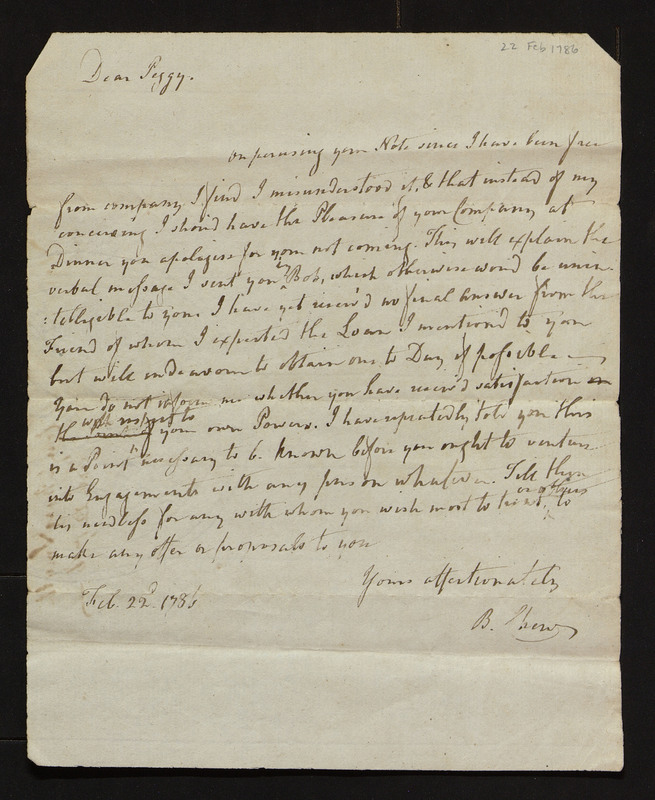 22 Feb 1786
Dear Peggy.
on perusing your Note since I have been free
from company I find I misunderstood it, & that instead of my
conceiving I should have the Pleasure of your Company at
Dinner you apologise for your not coming. This will explain the
verbal message I sent you by Bob, which otherwise would be unin-
:telligible to you. I have yet receiv'd no final answer from the
Friend of whom I expected the Loan I mention'd to you
but will endeavour to obtain one to Day if possible —
You do not inform me whether you have receiv'd satisfaction
with respect to
your own Powers. I have repeatedly told you this
is a Point necessary to be known before you ought to venture
into Engagements with any person whatever. Till then
or others
tis needless for any with whom you wish most to treat, to
make any offer or proposals to you
Yours affectionately
Feb. 22d. 1786
B. Chew